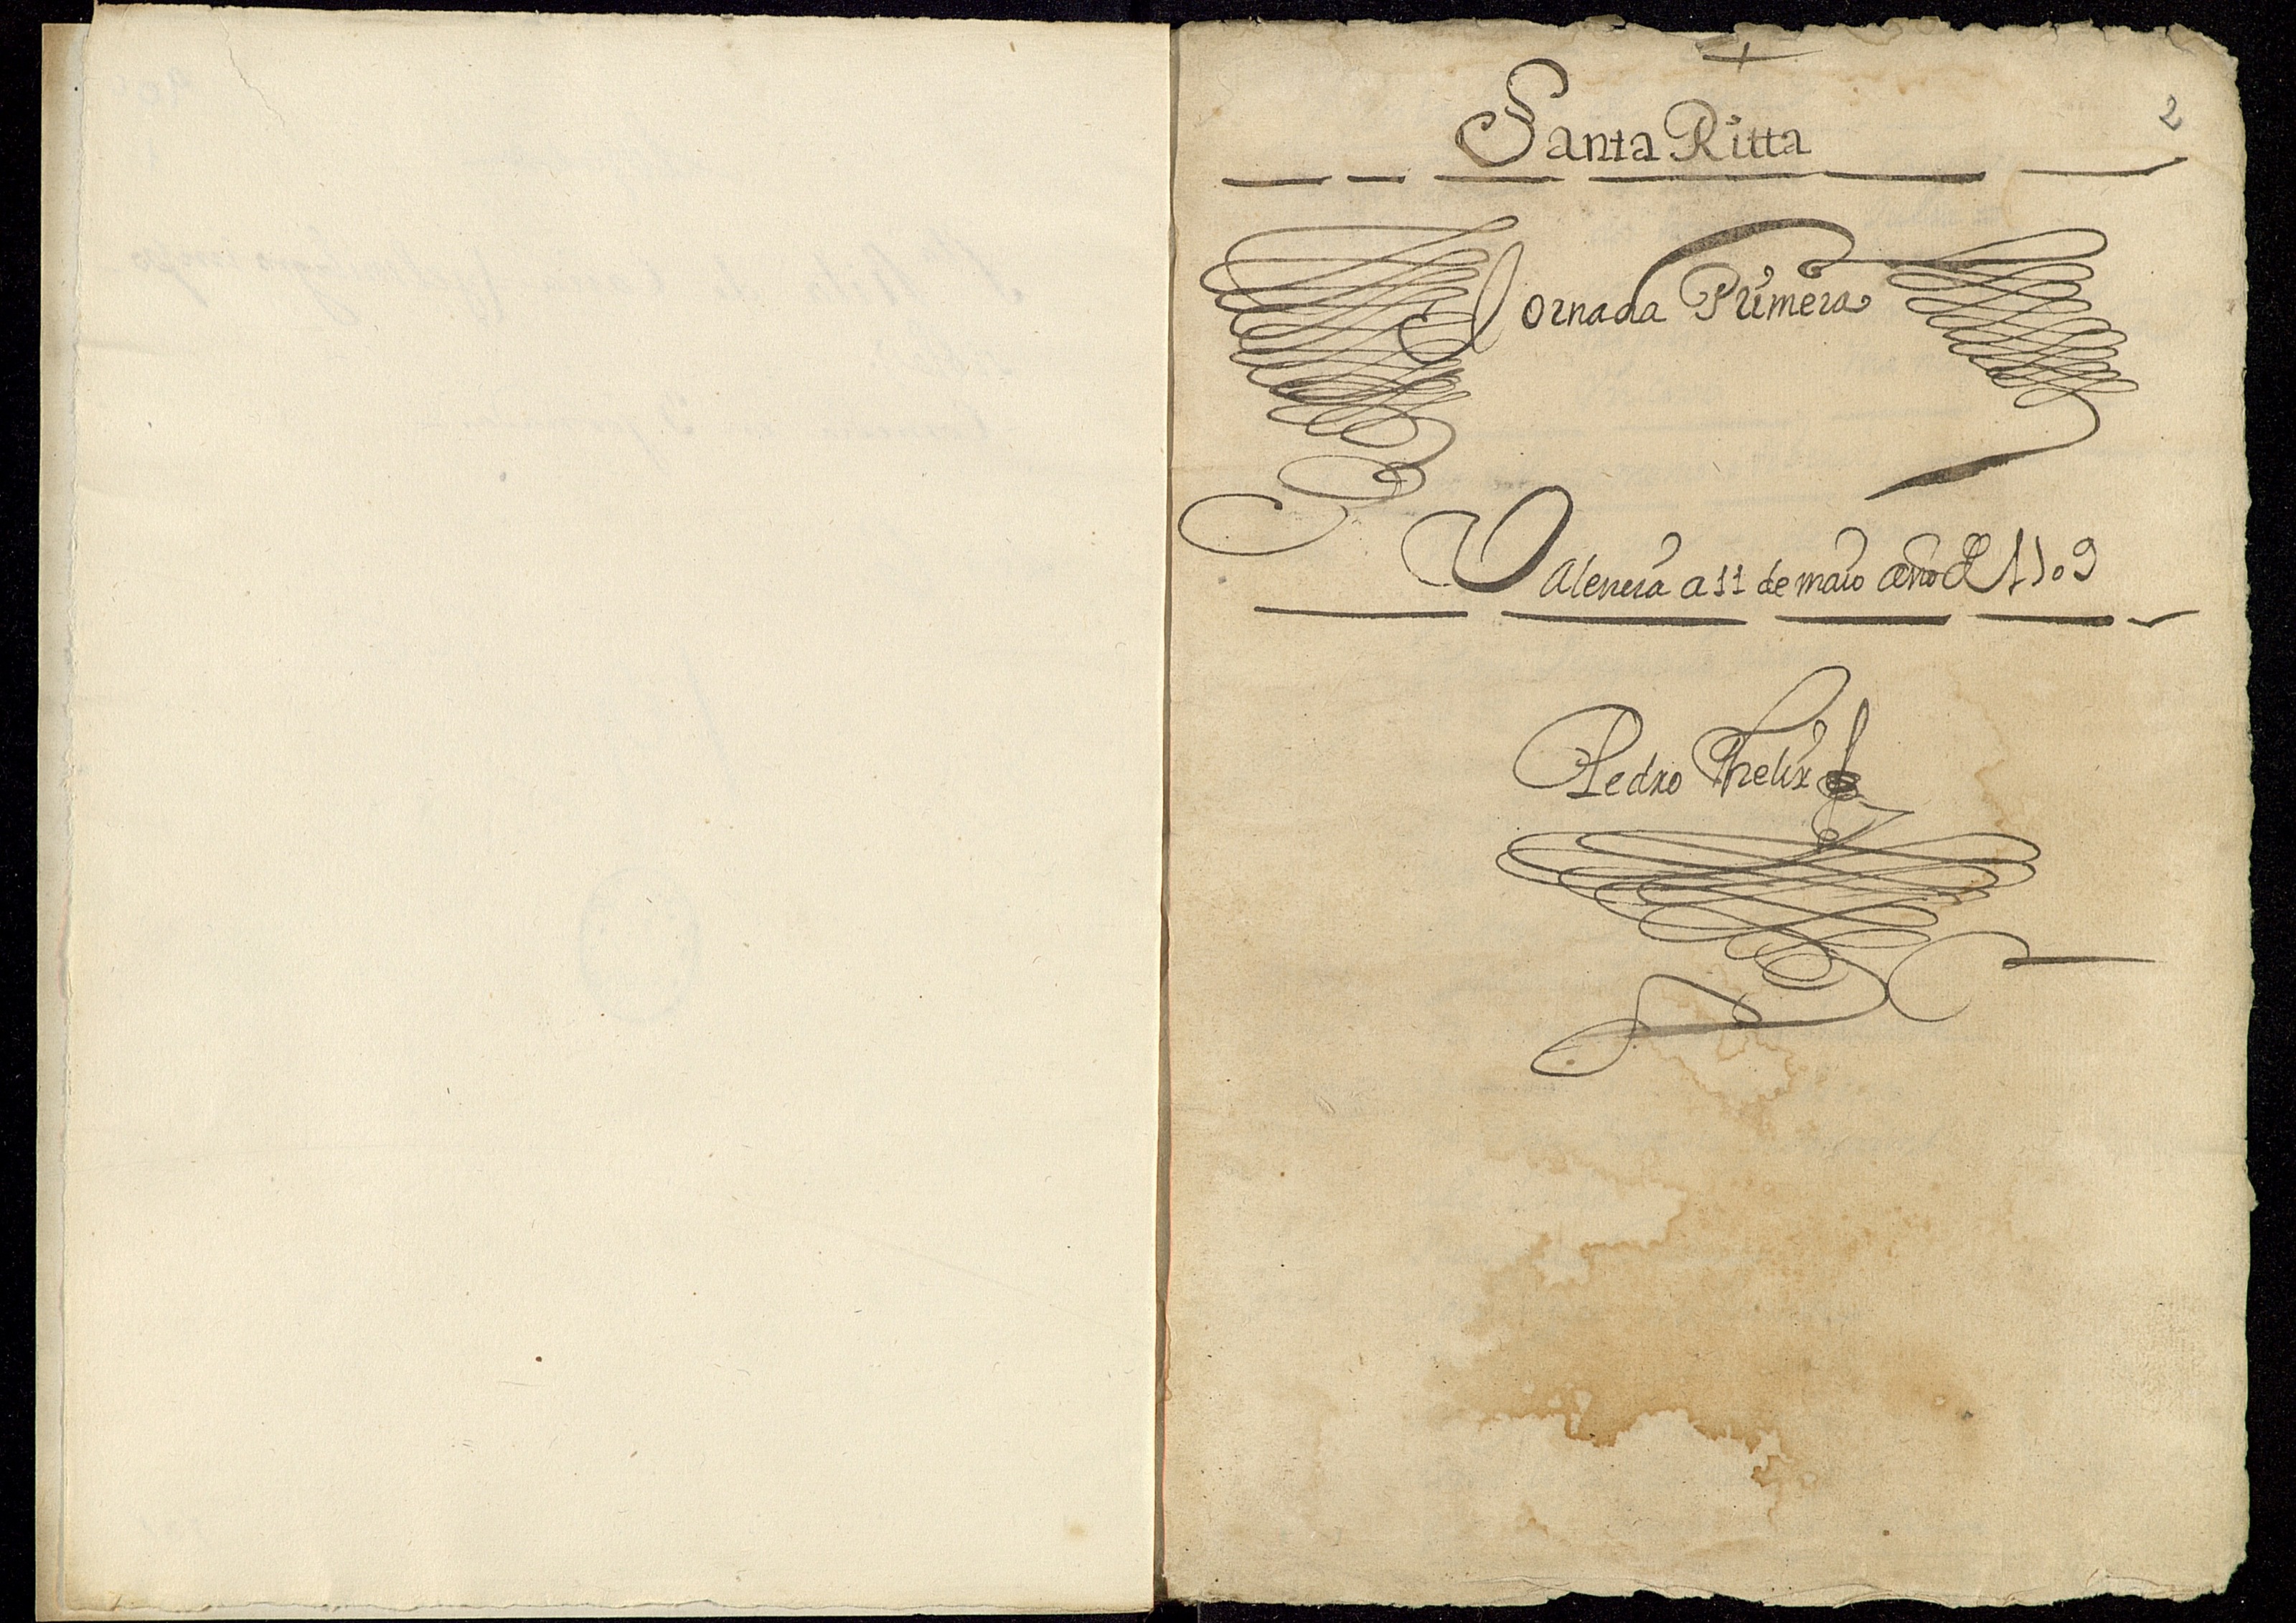 2
Santa Ritta
Jornada Primera
Valencia a 11 de maio año de 1709
Pedro Phelix